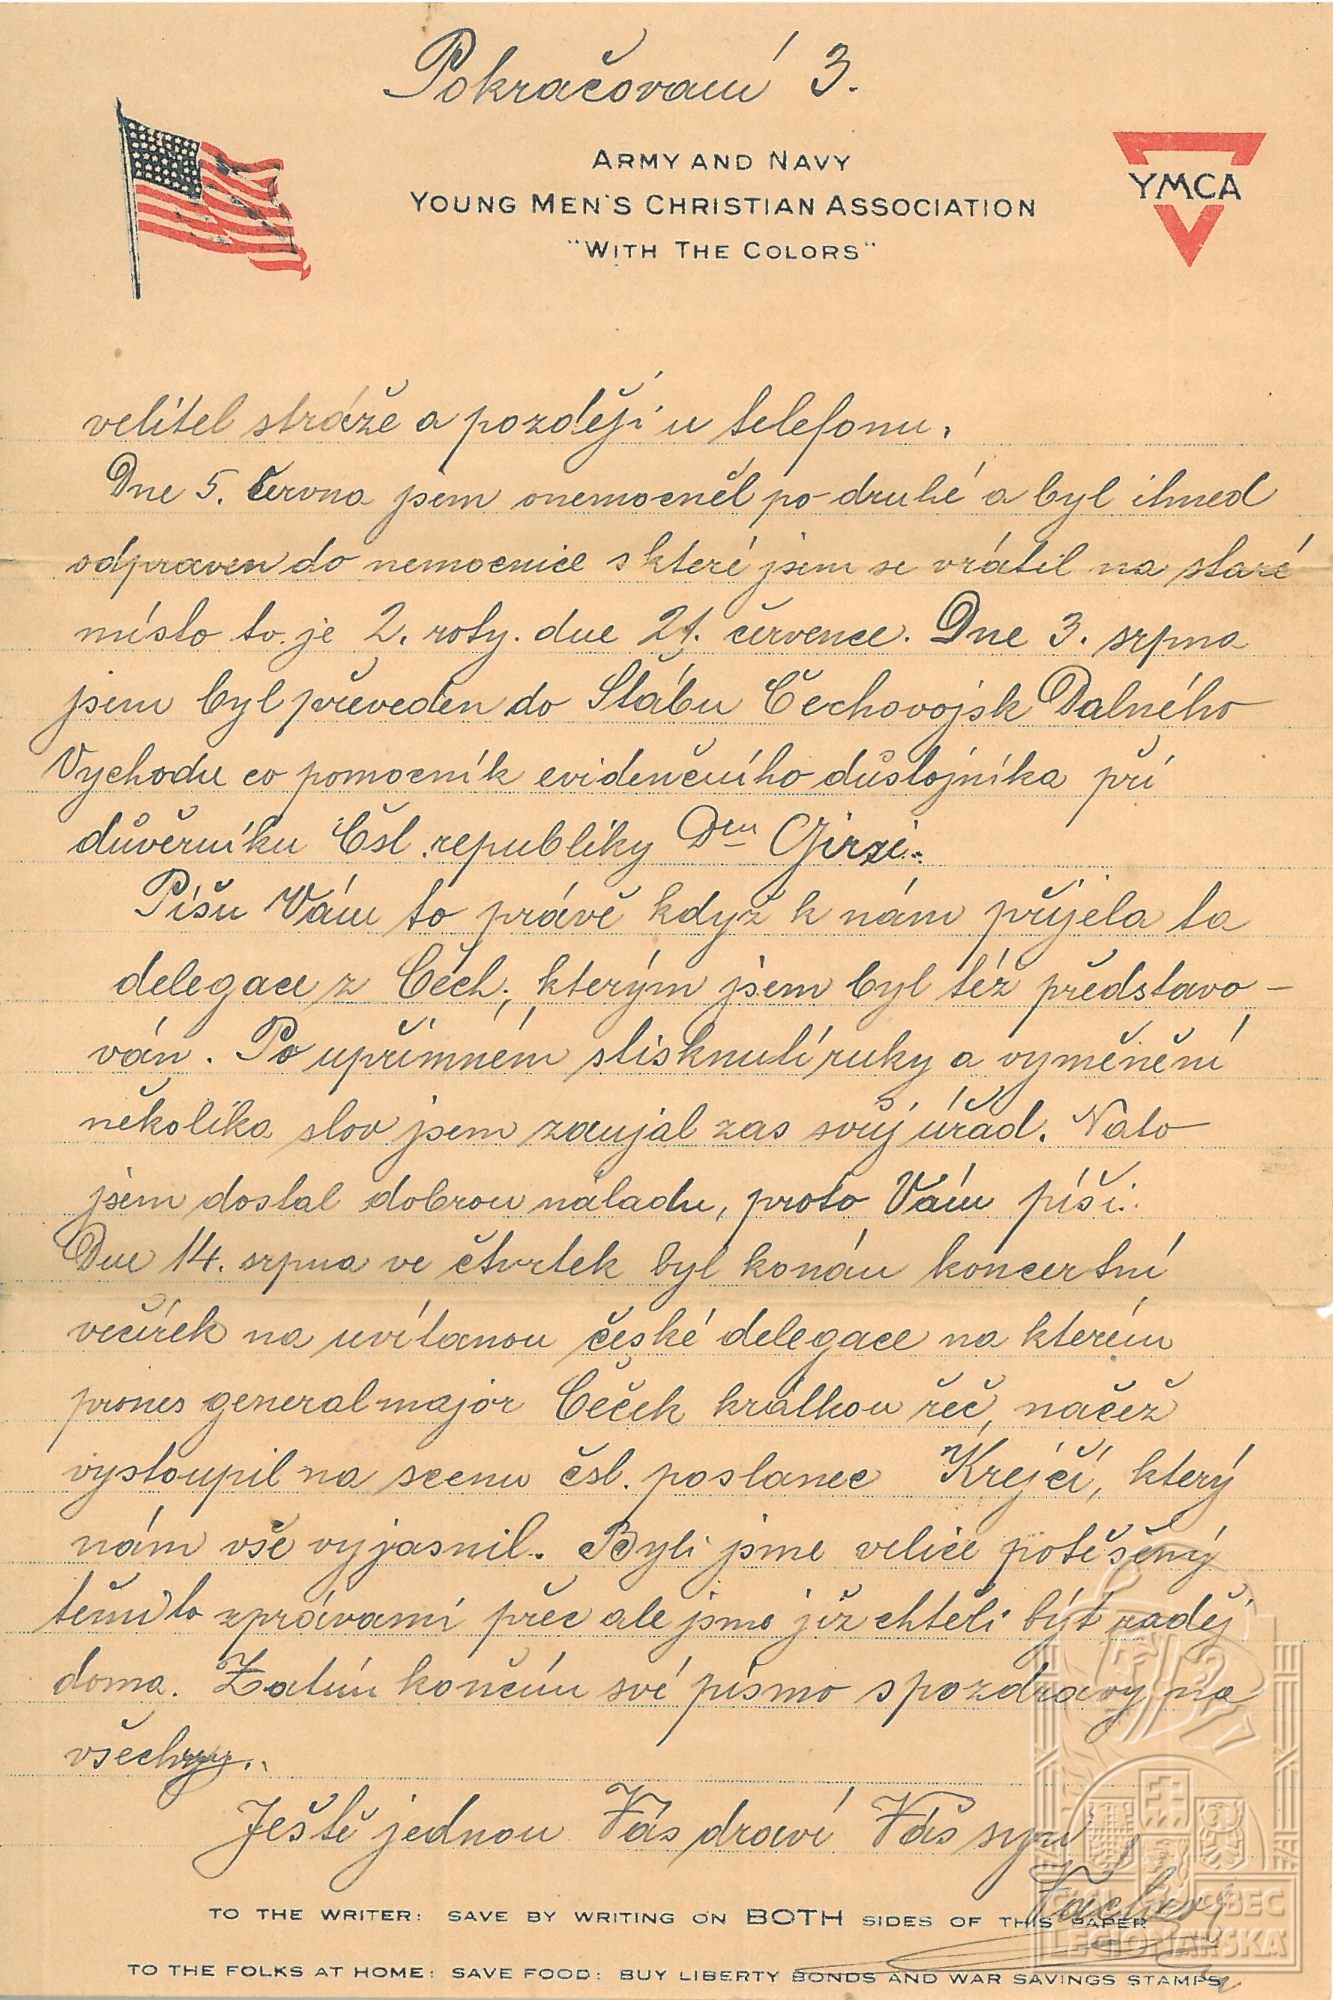 Pokračovaní 3.
ARMY AND NAVY
YOUNG MEN'S CHRISTIAN ASSOCIATION
"WITH THE COLORS"
YMCA
velitel stráže a pozdějí u telefonu.
Dne 5. června jsem onemocněl po-druhé a byl ihned
odpraven do nemocnice s které jsem se vrátil na staré
místo to je 2. roty. dne 21. července. Dne 3. srpna
jsem byl převeden do Štábu Čechovojsk Dalného
Vychodu co pomocník evidenčního důstojníka při
důvěrníku Čsl. republiky Dru Girsi.
Píšu Vám to právě když k nám přijela ta
delegace z Čech, kterým jsem byl též představo-
ván. Po upřímném stisknutí ruky a vyměnění
několika slov jsem zaujal zas svůj úřad. Nato
jsem dostal dobrou náladu, proto Vám píši.
Dne 14. srpna ve čtvrtek byl konán koncertní
večírek na uvítanou české delegace na kterém
prones generalmajor Čeček krátkou řeč, načež
vystoupil na scenu čsl. poslanec Krejčí, který
nám vše vyjasnil. Byli jsme velice potěšený
těmito zprávami přec ale jsme již chtěli být raděj
doma. Zatím končím své písmo s pozdravy na
všechny.
Ještě jednou Vás draví Váš syn
TO THE WRITER: SAVE BY WRITING ON BOTH SIDES OF THIS PAPER
TO THE FOLKS AT HOME: SAVE FOOD: BUY LIBERTY BONDS AND WAR SAVINGS STAMPS
OBEC
LEGIONÁŘSKÁ